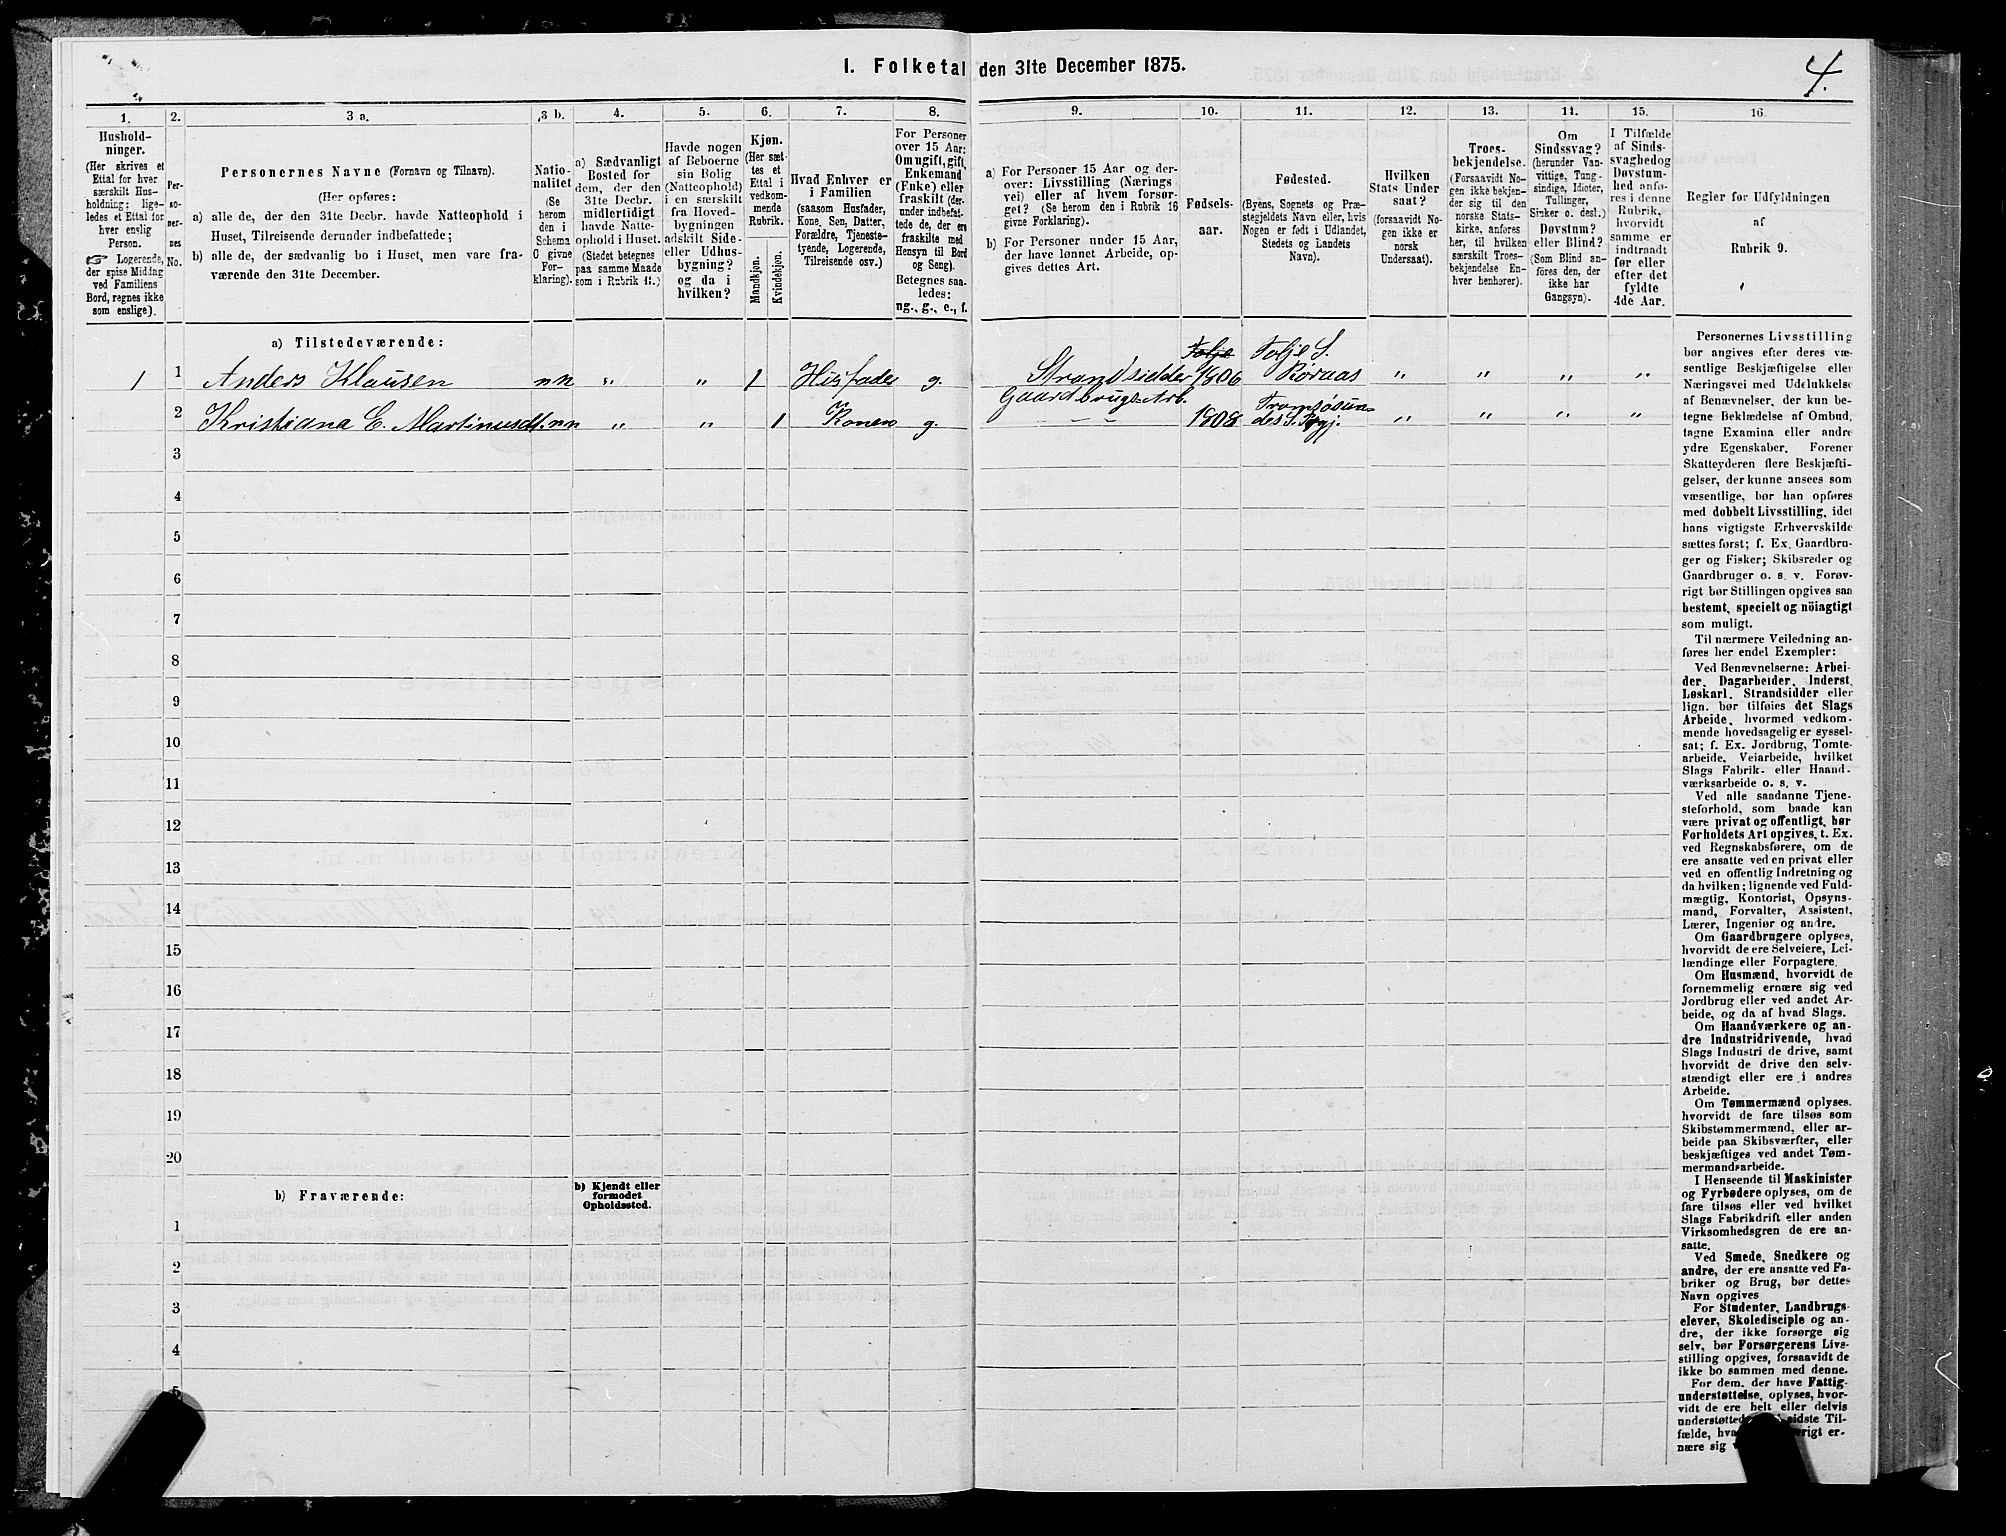 I. Folketal den 31te December 1875.
4.
1.
Hushold-
ninger.
(Her skrives et
Ettal for hver
særskilt Hus-
holdning; lige-
ledes et Ettal for
hver enslig
Person.
☞ Logerende,
der spise Middag
ved Familiens
Bord, regnes ikke
som enslige).
2.
Per-
so-
ner-
nes
No.
3 a.
Personernes Navne (Fornavn og Tilnavn).
(Her opføres:
a) alle de, der den 31te Decbr. havde Natteophold i
Huset, Tilreisende derunder indbefattede;
b) alle de, der sædvanlig bo i Huset, men vare fra-
værende den 31te December.
3 b.
Natio-
nalitet
(Se
herom
den i
Schema
6 givne
For-
klaring).
4.
a) Sædvanligt
Bosted for
dem, der den
31te Decbr.
midlertidigt
havde Natte-
ophold i Huset.
(Stedet betegnes
paa samme Maade
som i Rubrik 11.)
5.
Havde nogen
af Beboerne
sin Bolig
(Natteophold)
i en særskilt
fra Hoved-
bygningen
adskilt Side-
eller Udhus-
bygning?
og da i
hvilken?
6.
Kjøn.
(Her sæt-
tes et
Ettal i
vedkom-
mende
Rubrik.
Mandkjøn.
Kvindekjøn.
7.
Hvad Enhver er
i Familien
(saasom Husfader,
Kone, Søn, Datter,
Forældre, Tjeneste-
tyende, Logerende,
Tilreisende osv.)
8.
For Personer
over 15 Aar:
Om ugift, gift,
Enkemand
(Enke) eller
fraskilt (der-
under indbefat-
tede de, der ere
fraskilte med
Hensyn til Bord
og Seng).
Betegnes saa-
ledes:
ug., g., e., f.
9.
a) For Personer 15 Aar og der-
over: Livsstilling (Nærings-
vei) eller af hvem forsør-
get? (Se herom den i Rubrik 16
givne Forklaring).
b) For Personer under 15 Aar,
der have lønnet Arbeide, op-
gives dettes Art.
10.
Fødsels-
aar.
11.
Fødested.
(Byens, Sognets og Præ-
stegjeldets Navn eller, hvis
Nogen er født i Udlandet,
Stedets og Landets
Navn).
12.
Hvilken
Stats Under-
saat?
(forsaavidt No-
gen ikke er
norsk
Undersaat).
13.
Troes-
bekjendelse.
(Forsaavidt No-
gen ikke bekjen-
der sig til den
norske Stats-
kirke, anføres
her, til hvilken
særskilt Troes-
bekjendelse En-
hver henhører).
14.
Om
Sindssvag?
(herunder Van-
vittige, Tung-
sindige, Idioter,
Tallinger,
Sinker o. desl.)
Døvstum?
eller Blind?
(Som Blind an-
føres den, der
ikke har
Gangsyn).
15.
I Tilfælde
af Sinds-
svaghed og
Døvstum-
hed anfø-
res i denne
Rubrik,
hvorvidt
samme er
indtraadt
før eller
efter det
fyldte
4de Aar.
16.
Regler for Udfyldningen
af
Rubrik 9.
a) Tilstedeværende:
1 1 Anders Klausen nn „ „ 1 Husfader g. Strandsidder Gaardbrugs-Arb. 1806 Tolje S. Røraas „ „ „ „
2 Kristiana E. Martinusd. nn „ „ 1 Konen g. — — 1808 Tromsøsun-
des S. Prgj. „ „ „ „
3
4
5
6
7
8
9
10
11
12
13
14
15
16
17
18
19
20
b) Fraværende:
b) Kjendt eller
formodet
Opholdssted.
1
2
3
4
5
Personernes Livsstilling
bør angives efter deres væ-
sentlige Beskjæftigelse eller
Næringsvei med Udelukkelse
af Benævnelser, der kun be-
tegne Beklædelse af Ombud,
tagne Examina eller andre
ydre Egenskaber. Forener
Skatteyderen flere Beskjæfti-
gelser, der kunne ansees som
væsentlige, bør han opføres
med dobbelt Livsstilling, idet
hans vigtigste Erhvervskilde
sættes først; f. Ex. Gaardbru-
ger og Fisker; Skibsreder og
Gaardbruger o. s. v. Forøv-
rigt bør Stillingen opgives saa
bestemt, specielt og nöiagtigt
som muligt.
Til nærmere Veiledning an-
føres her endel Exempler:
Ved Benævnelserne: Arbei-
der, Dagarbeider, Inderst,
Løskarl, Strandsidder eller
lign. bør tilføies det Slags
Arbeide, hvormed vedkom-
mende hovedsagelig er syssel-
sat; f. Ex. Jordbrug, Tomte-
arbeide, Veiarbeide, hvilket
Slags Fabrik- eller Haand-
værksarbeide o. s. v.
Ved alle saadanne Tjene-
steforhold, som baade kan
være privat og offentligt, bør
Forholdets Art opgives, t. Ex.
ved Regnskabsførere, om de
ere ansatte ved en privat eller
ved en offentlig Indretning og
da hvilken; lignende ved Fuld-
mægtig, Kontorist, Opsyns-
mand, Forvalter, Assistent,
Lærer, Ingeniør og andre.
Om Gaardbrugere oplyses,
hvorvidt de ere Selveiere, Lei-
lændinge eller Forpagtere.
Om Husmænd, hvorvidt de
fornemmelig ernære sig ved
Jordbrug eller ved andet Ar-
beide, og da af hvad Slags.
Om Haandværkere og an-
dre Industridrivende, hvad
Slags Industri de drive, samt
hvorvidt de drive den selv-
stændigt eller ere i andres
Arbeide.
Om Tømmermænd oplyses,
hvorvidt de fare tilsøs som
Skibstømmermænd, eller ar-
beide paa Skibsværfter, eller
beskjæftiges ved andet Tøm-
mermandsarbeide.
I Henseende til Maskinister
og Fyrbødere oplyses, om de
fare tilsøs eller ved hvilket
Slags Fabrikdrift eller anden
Virksomhedsgren de ere an-
satte.
Ved Smede, Snedkere og
andre, der ere ansatte ved Fa-
briker og Brug, bør dettes
Navn opgives
For Studenter, Landbrugs-
elever, Skoledisciple og an-
dre, der ikke forsørge sig
selv, bør Forsørgerens Livs-
stilling opgives, forsaavidt de
ikke bo sammen med denne.
For dem, der have Fattig-
understøttelse, oplyses, hvor-
vidt de ere helt eller delvis
understøttede sidste Til-
fælde, er-
nære sig